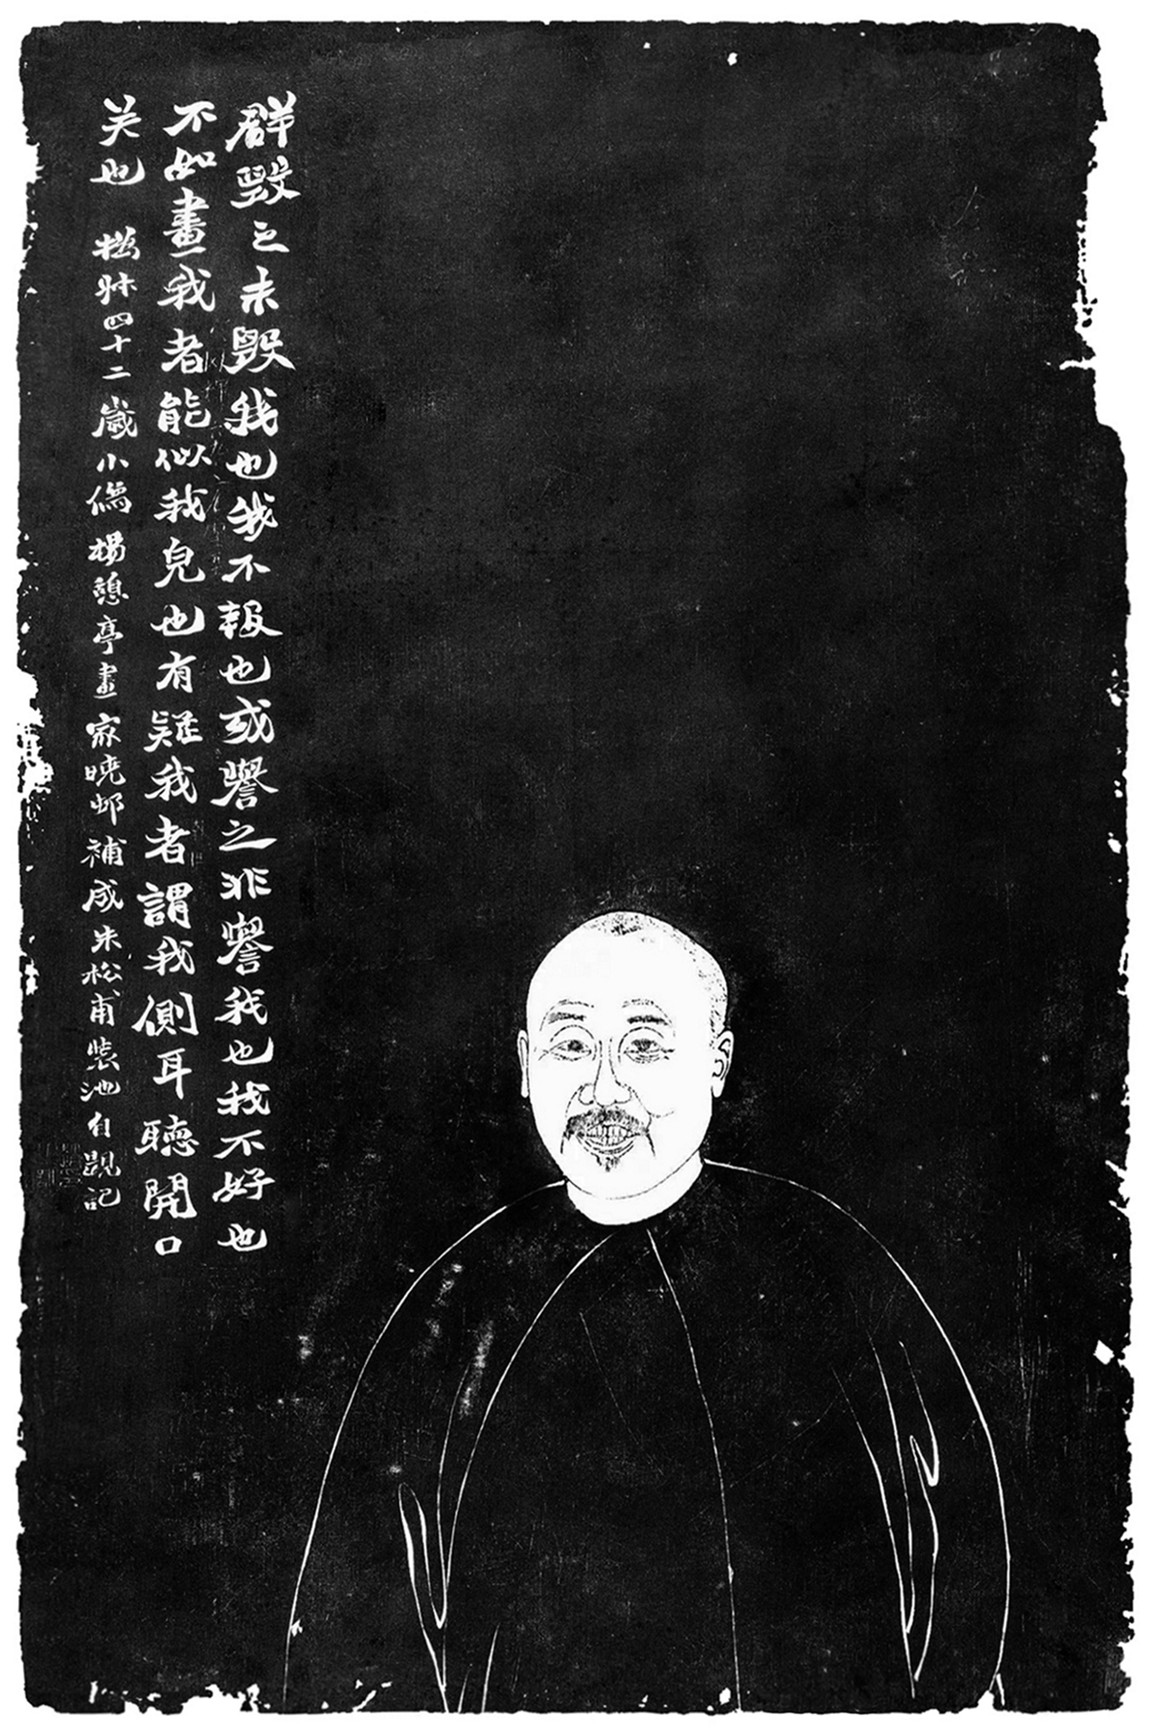 群毀之未毀我也我不報也或譽之非譽我也我不好也
不如畫我者能似我皃也有疑我者謂我側耳聽開口
关也 㧾叔四十二歲小像楊憩亭畫家曉邨補成朱松甫裝池自題記